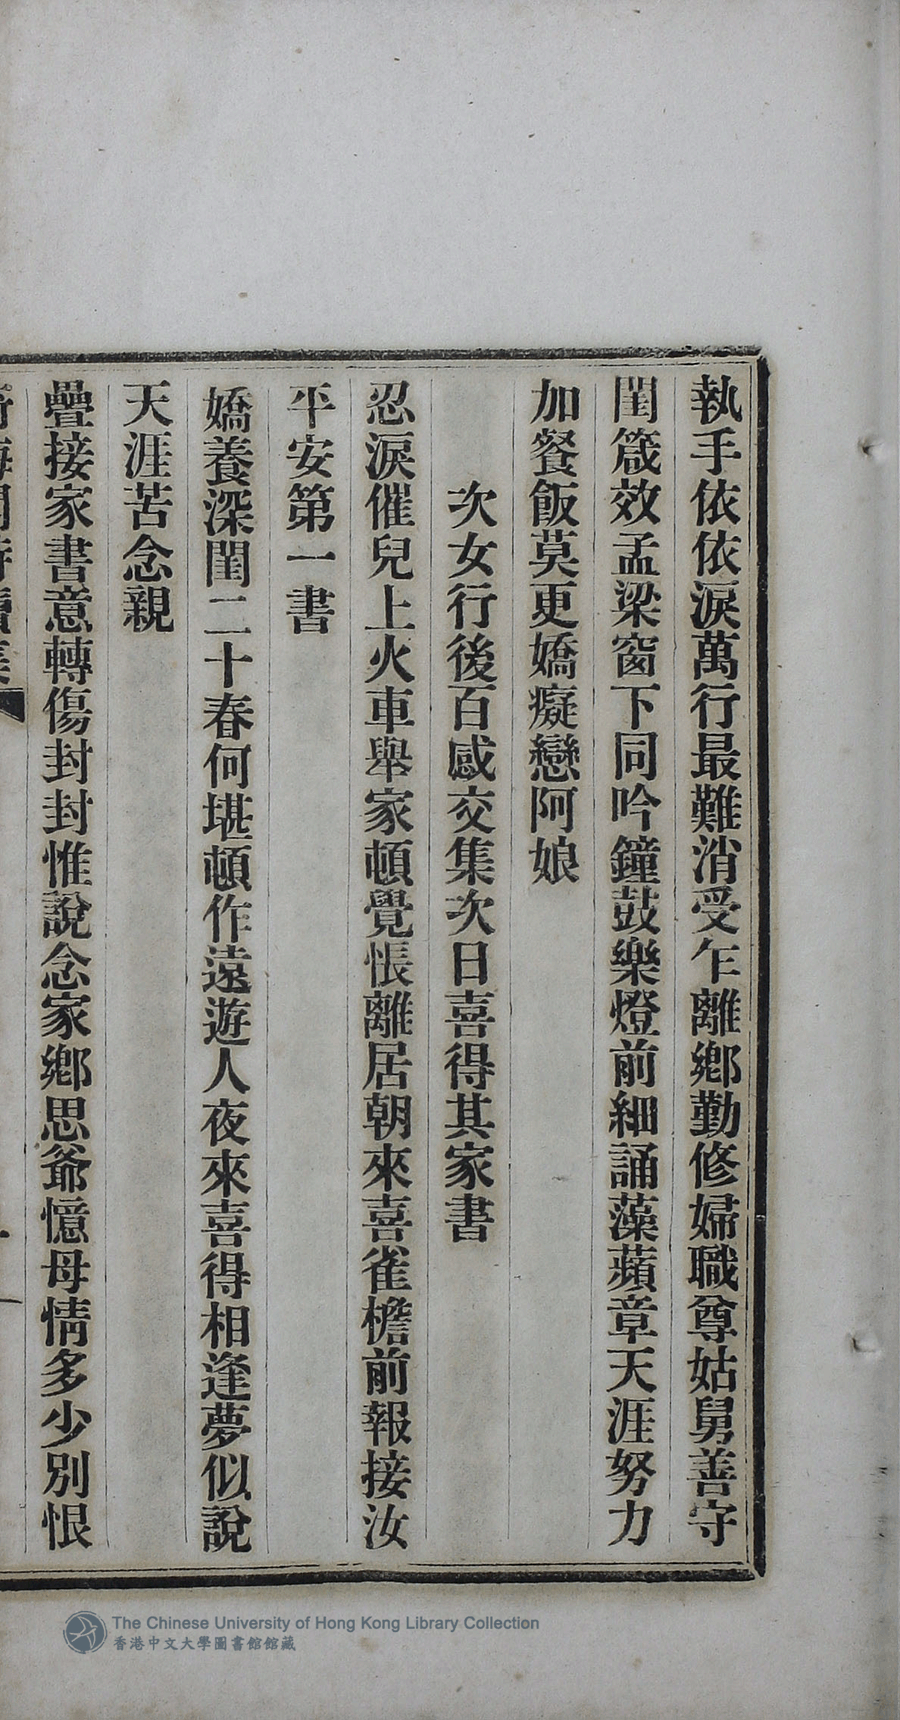 執手依依淚萬行最難消受乍離鄉勤修婦職尊姑舅善守
閨箴效孟梁窗下同吟鐘鼓樂燈前細誦藻蘋章天涯努力
加餐飯莫更嬌癡戀阿娘
次女行後百感交集次日喜得其家書
忍淚催兒上火車舉家頓覺悵離居朝來喜雀檐前報接汝
平安第一書
嬌養深閨二十春何堪頓作遠遊人夜來喜得相逢夢似說
天涯苦念親
疊接家書意轉傷封封惟說念家鄉思爺憶母情多少別恨
The Chinese University of Hong Kong Library Collection
香港中文大學圖書館館藏